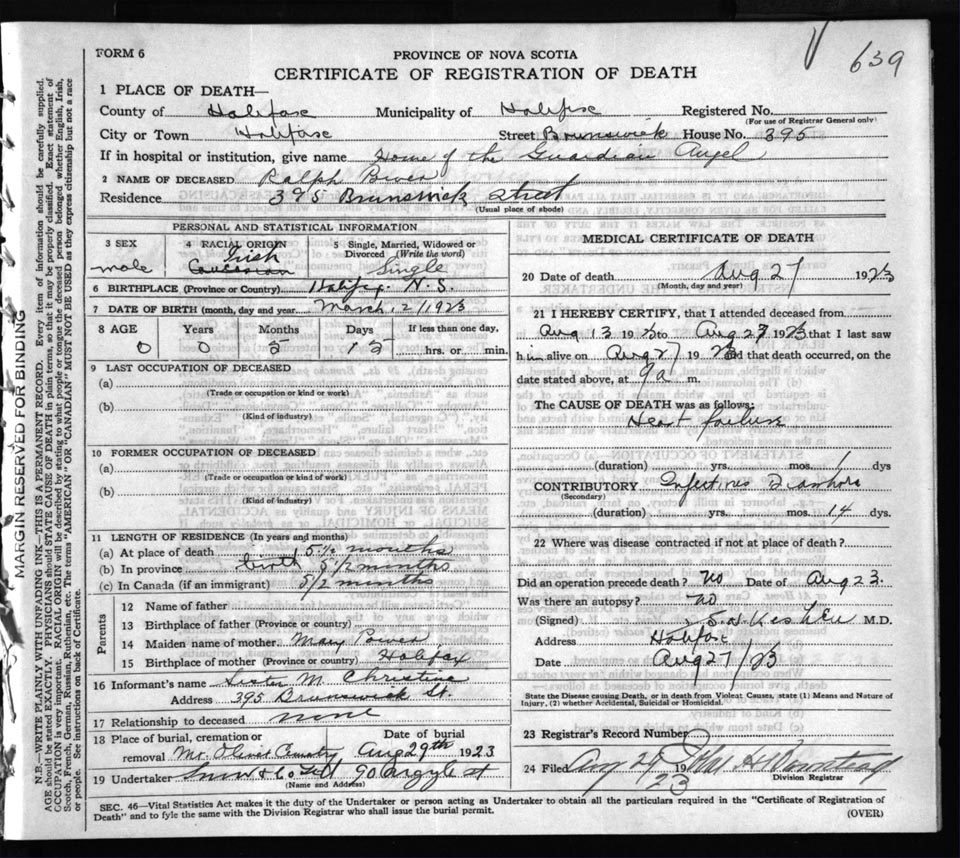 639
FORM 6
PROVINCE OF NOVA SCOTIA
CERTIFICATE OF REGISTRATION OF DEATH
1 PLACE OF DEATH—
County of Halifax Municipality of Halifax Registered No.
(For use of Registrar General only)
City or Town Halifax Street Brunswick House No. 395
If in hospital or institution, give name Home of the Guardian Angel
2 NAME OF DECEASED Ralph
Residence 395 Brunswick Street
(Usual place of abode)
PERSONAL AND STATISTICAL INFORMATION
3 SEX 4 RACIAL ORIGIN 5 Single, Married, Widowed or Divorced (Write the word)
male Irish Single
6 BIRTHPLACE (Province or Country) Halifax N.S.
7 DATE OF BIRTH (month, day and year) March 12/1923
8 AGE Years Months Days If less than one day,
0 0 5 15 hrs. or min.
9 LAST OCCUPATION OF DECEASED
(a)
(Trade or occupation or kind or work)
(b)
(Kind of industry)
10 FORMER OCCUPATION OF DECEASED
(a)
(Trade or occupation or kind of work)
(b)
(Kind of industry)
11 LENGTH OF RESIDENCE (In years and months)
(a) At place of death 5½ months
(b) In province birth 5½ months
(c) In Canada (if an immigrant) 5½ months
Parents
12 Name of father
13 Birthplace of father (Province or country)
14 Maiden name of mother Mary
15 Birthplace of mother (Province or country) Halifax
16 Informant's name Sister M Christina
Address 395 Brunswick St.
17 Relationship to deceased none
18 Place of burial, cremation or removal Mt. Olivet Date of burial Aug 29th 1923
19 Undertaker Snow & Co Ltd 90 Argyle st
(Name and Address)
MEDICAL CERTIFICATE OF DEATH
20 Date of death Aug 27 1923
(Month, day and year)
21 I HEREBY CERTIFY, that I attended deceased from
Aug 13 1923 to Aug 27 1923 that I last saw
him alive on Aug 27 1923 and that death occurred, on the
date stated above, at 9 a m.
The CAUSE OF DEATH was as follows:
Heart failure
(duration) yrs. mos. 1 dys
CONTRIBUTORY Infectious Diarrhora
(Secondary)
(duration) yrs. mos. 14 dys.
22 Where was disease contracted if not at place of death?
Did an operation precede death? No Date of Aug 23.
Was there an autopsy? no
(Signed) M.D.
Address Halifax
Date Aug 27/23
State the Disease causing Death, or in death from Violent Causes, state (1) Means and Nature of Injury, (2) whether Accidental, Suicidal or Homicidal.
23 Registrar's Record Number
24 Filed Aug 29 1923
Division Registrar
SEC. 46—Vital Statistics Act makes it the duty of the Undertaker or person acting as Undertaker to obtain all the particulars required in the "Certificate of Registration of
Death" and to fyle the same with the Division Registrar who shall issue the burial permit.
(OVER)
MARGIN RESERVED FOR BINDING
N.B.—WRITE PLAINLY WITH UNFADING INK—THIS IS A PERMANENT RECORD. Every item of information should be carefully supplied.
AGE should be stated EXACTLY. PHYSICIANS should STATE CAUSE OF DEATH in plain terms, so that it may be properly classified. Exact statement of
OCCUPATION is very important. RACIAL ORIGIN will be described by stating to what people or tongue the deceased person belonged whether English, Irish,
Scotch, French, German, Russian, Ruthenian, etc. The terms "AMERICAN" OR "CANADIAN" MUST NOT BE USED as they express citizenship but not a race
or people. See instructions on back of Certificate.